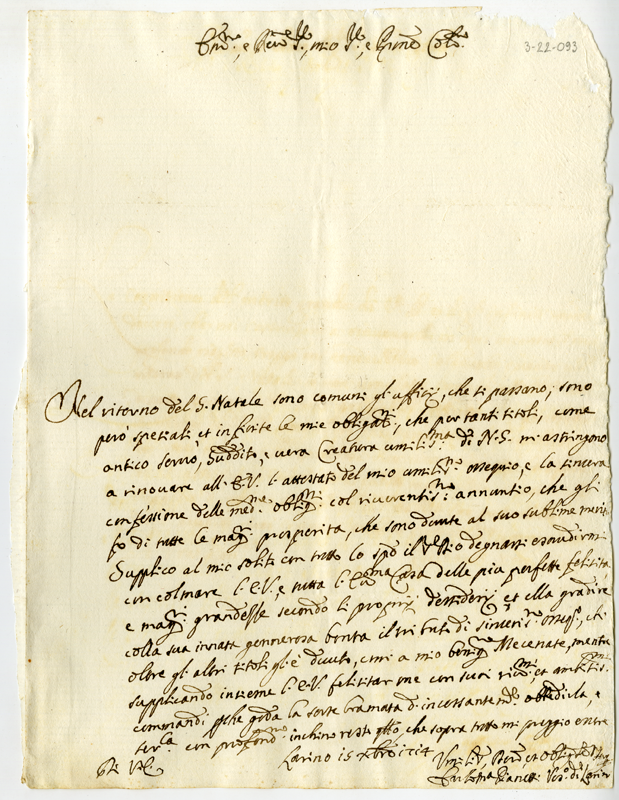 Em.mo, e Rev.mo Sig.r, mio Sig.r, e P.rone Col.mo
3-22-093
Nel ritorno del S. Natale sono comuni gl'ufficij, che si passano; sono
però speziali et infinite le mie obligat.ni, che per tanti titoli, come
antico servo, suddito, e vera Creatura umiliss.ma di N.S. mi astringono
a rinovare all'E.V. l'attestato del mio umiliss.mo ossequio, e la sincera
confessione delle med.me oblig.ni col riverentiss.mo annuntio, che gli
fo di tutte le mag.ri prosperità, che sono dovute al suo sublime merito
Supplico al mio solito con tutto lo sp.o il Sig.re Dio degnarsi esaudirmi
con colmare l'E.V., e tutta l'Ecc.ma Casa delle più perfette felicità
e mag.ri grandesse secondo li proprij desiderij et ella gradire
colla sua innata generosa bontà il tributo di sinceris.mo osseq.o, che
oltre gli altri titoli gli è dovuto, come a mio benig.mo Mecenate, mentre
supplicando insieme l'E.V. felicitar me con suoi riv.mi et ambitiss.mi
commandi, perche goda la sorte bramata d'incessantem.te obbedirla, e
servirla con profond.mo inchino resto q.to, che sopra tutto mi preggio
Larino 15 Xbre 1714
Di V.E.
Umiliss.o, Dev.mo et Oblig.mo